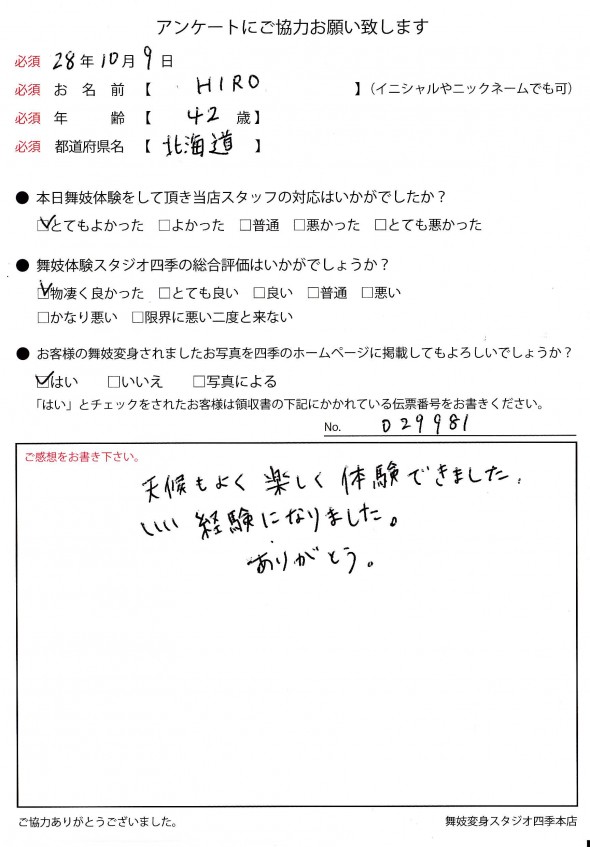 アンケートにご協力お願い致します
必須 28年10月9日
必須 お名前【 HIRO 】（イニシャルやニックネームでも可）
必須 年齢【 42 歳】
必須 都道府県名【 北海道 】
● 本日舞妓体験をして頂き当店スタッフの対応はいかがでしたか？
☑とてもよかった □よかった □普通 □悪かった □とても悪かった
● 舞妓体験スタジオ四季の総合評価はいかがでしょうか？
☑物凄く良かった □とても良い □良い □普通 □悪い
□かなり悪い □限界に悪い二度と来ない
● お客様の舞妓変身されましたお写真を四季のホームページに掲載してもよろしいでしょうか？
☑はい □いいえ □写真による
「はい」とチェックをされたお客様は領収書の下記にかかれている伝票番号をお書きください。
No. 029981
ご感想をお書き下さい。
天候もよく 楽しく 体験できました.
いい 経験になりました。
ありがとう。
ご協力ありがとうございました。
舞妓変身スタジオ四季本店